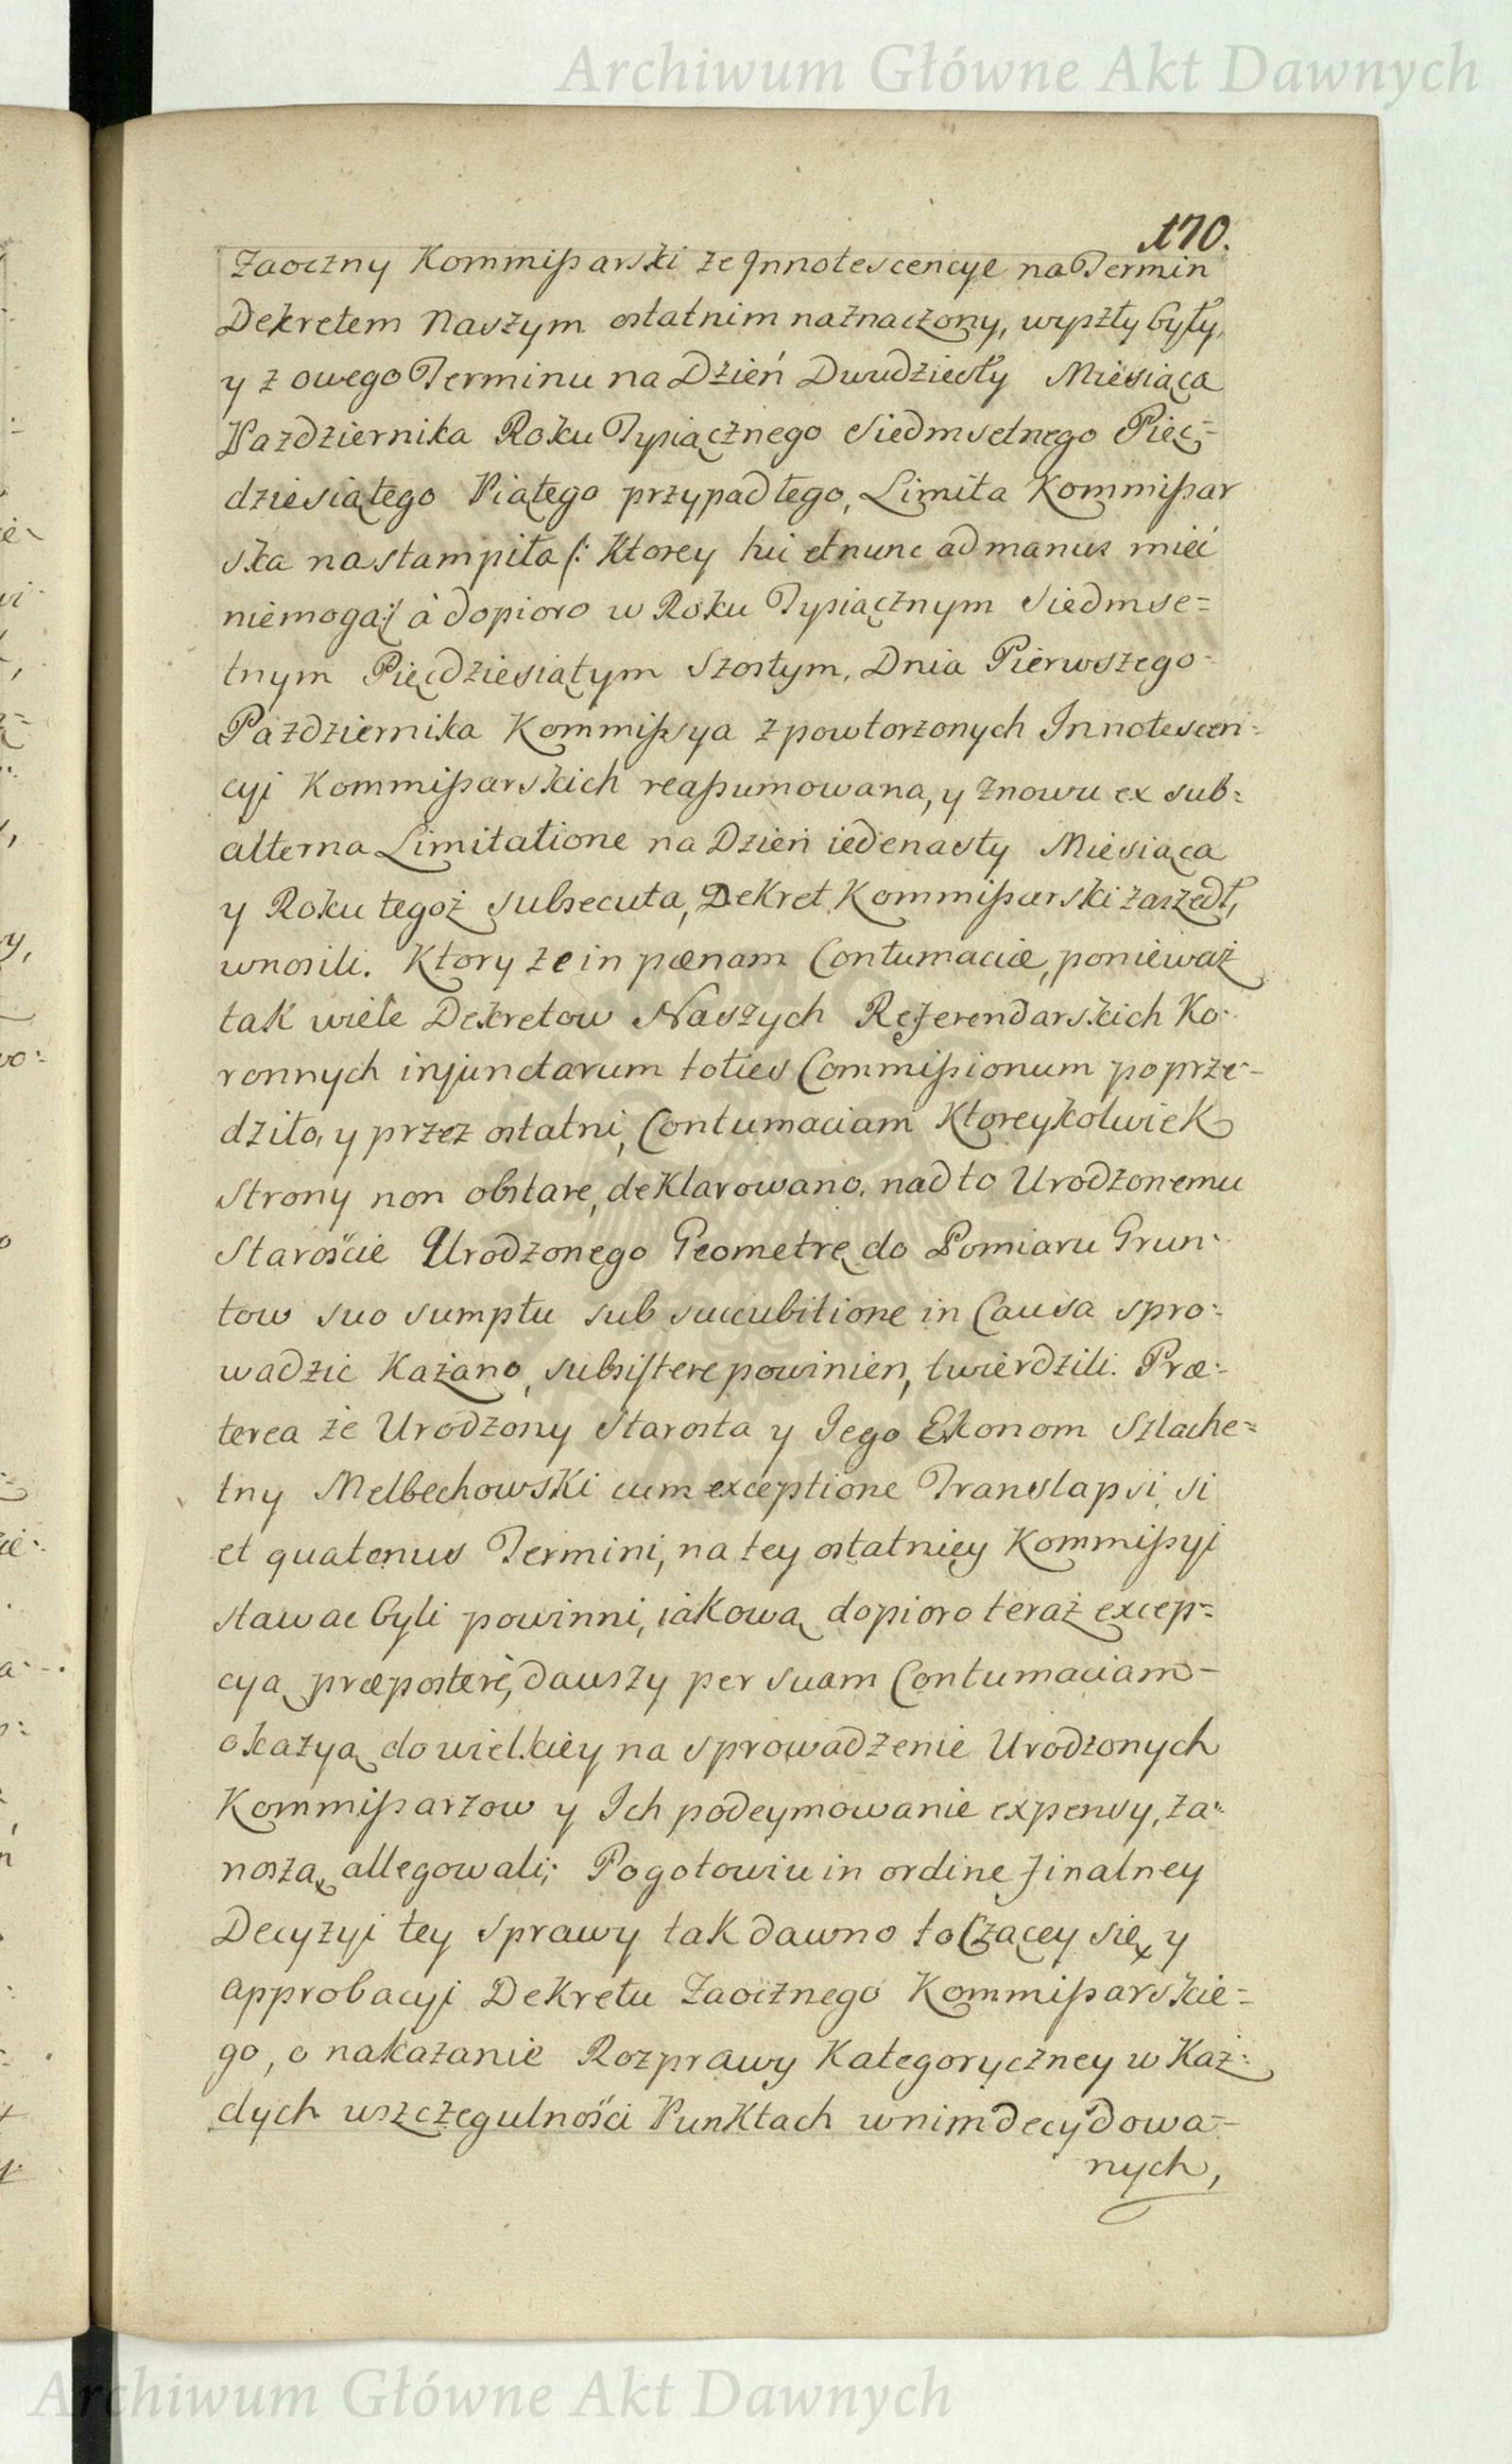 Archiwum Główne Akt Dawnych
170.
Zaoczny Kommissarski że Innotescencye na Termin
Dekretem Naszym ostatnim naznaczony, wyszły były,
y z owego Terminu na Dzień Dwudziesty Miesiąca
Pazdziernika Roku Tysiącznego Siedmsetnego Pięć=
dziesiątego Piątego przypadłego, Limita Kommissar
ska nastąmpiła /: Ktorey hic et nunc ad manus mieć
niemogą:/ à dopioro w Roku Tysiącznym Siedmse=
tnym Pięćdziesiątym Szostym, Dnia Pierwszego
Pazdziernika Kommissya z powtorzonych Innotescen=
cyi Kommissarskich reassumowana, y znowu ex sub=
alterna Limitatione na Dzień iedenasty Miesiąca
y Roku tegoż subsecuta, Dekret Kommissarski zaszedł,
wnosili. Ktory że in pœnam Contumaciæ, ponieważ
tak wiele Dekretow Naszych Referendarskich Ko=
ronnych injunctarum toties Commissionum poprze=
dziło, y przez ostatni, Contumaciam Ktoreykolwiek
Strony non obstare, deklarowano, nadto Urodzonemu
Staroście Urodzonego Geometrę do Pomiaru Grun=
tow suo sumptu sub succubitione in Causa spro=
wadzic Kazano, subsistere powinien, twierdzili. Præ=
terea że Urodzony Starosta y Jego Ekonom Szlache=
tny Melbechowski cum exceptione Translapsi si
et quatenus Termini, na tey ostatniey Kommissyi
stawac byli powinni, iakową dopioro teraz excep=
cyą præposterè, dawszy per suam Contumaciam
okazyą do wielkiey na sprowadzenie Urodzonych
Kommissarzow y Ich podeymowanie expensy, za=
noszą, allegowali; Pogotowiu in ordine finalney
Decyzyi tey Sprawy tak dawno toczącey się, y
approbacyi Dekretu Zaocznego Kommissarskie=
go, o nakazanie Rozprawy Kategoryczney w Każ=
dych wszczegulności Punktach w nim decydowa=
nych,
Archiwum Główne Akt Dawnych